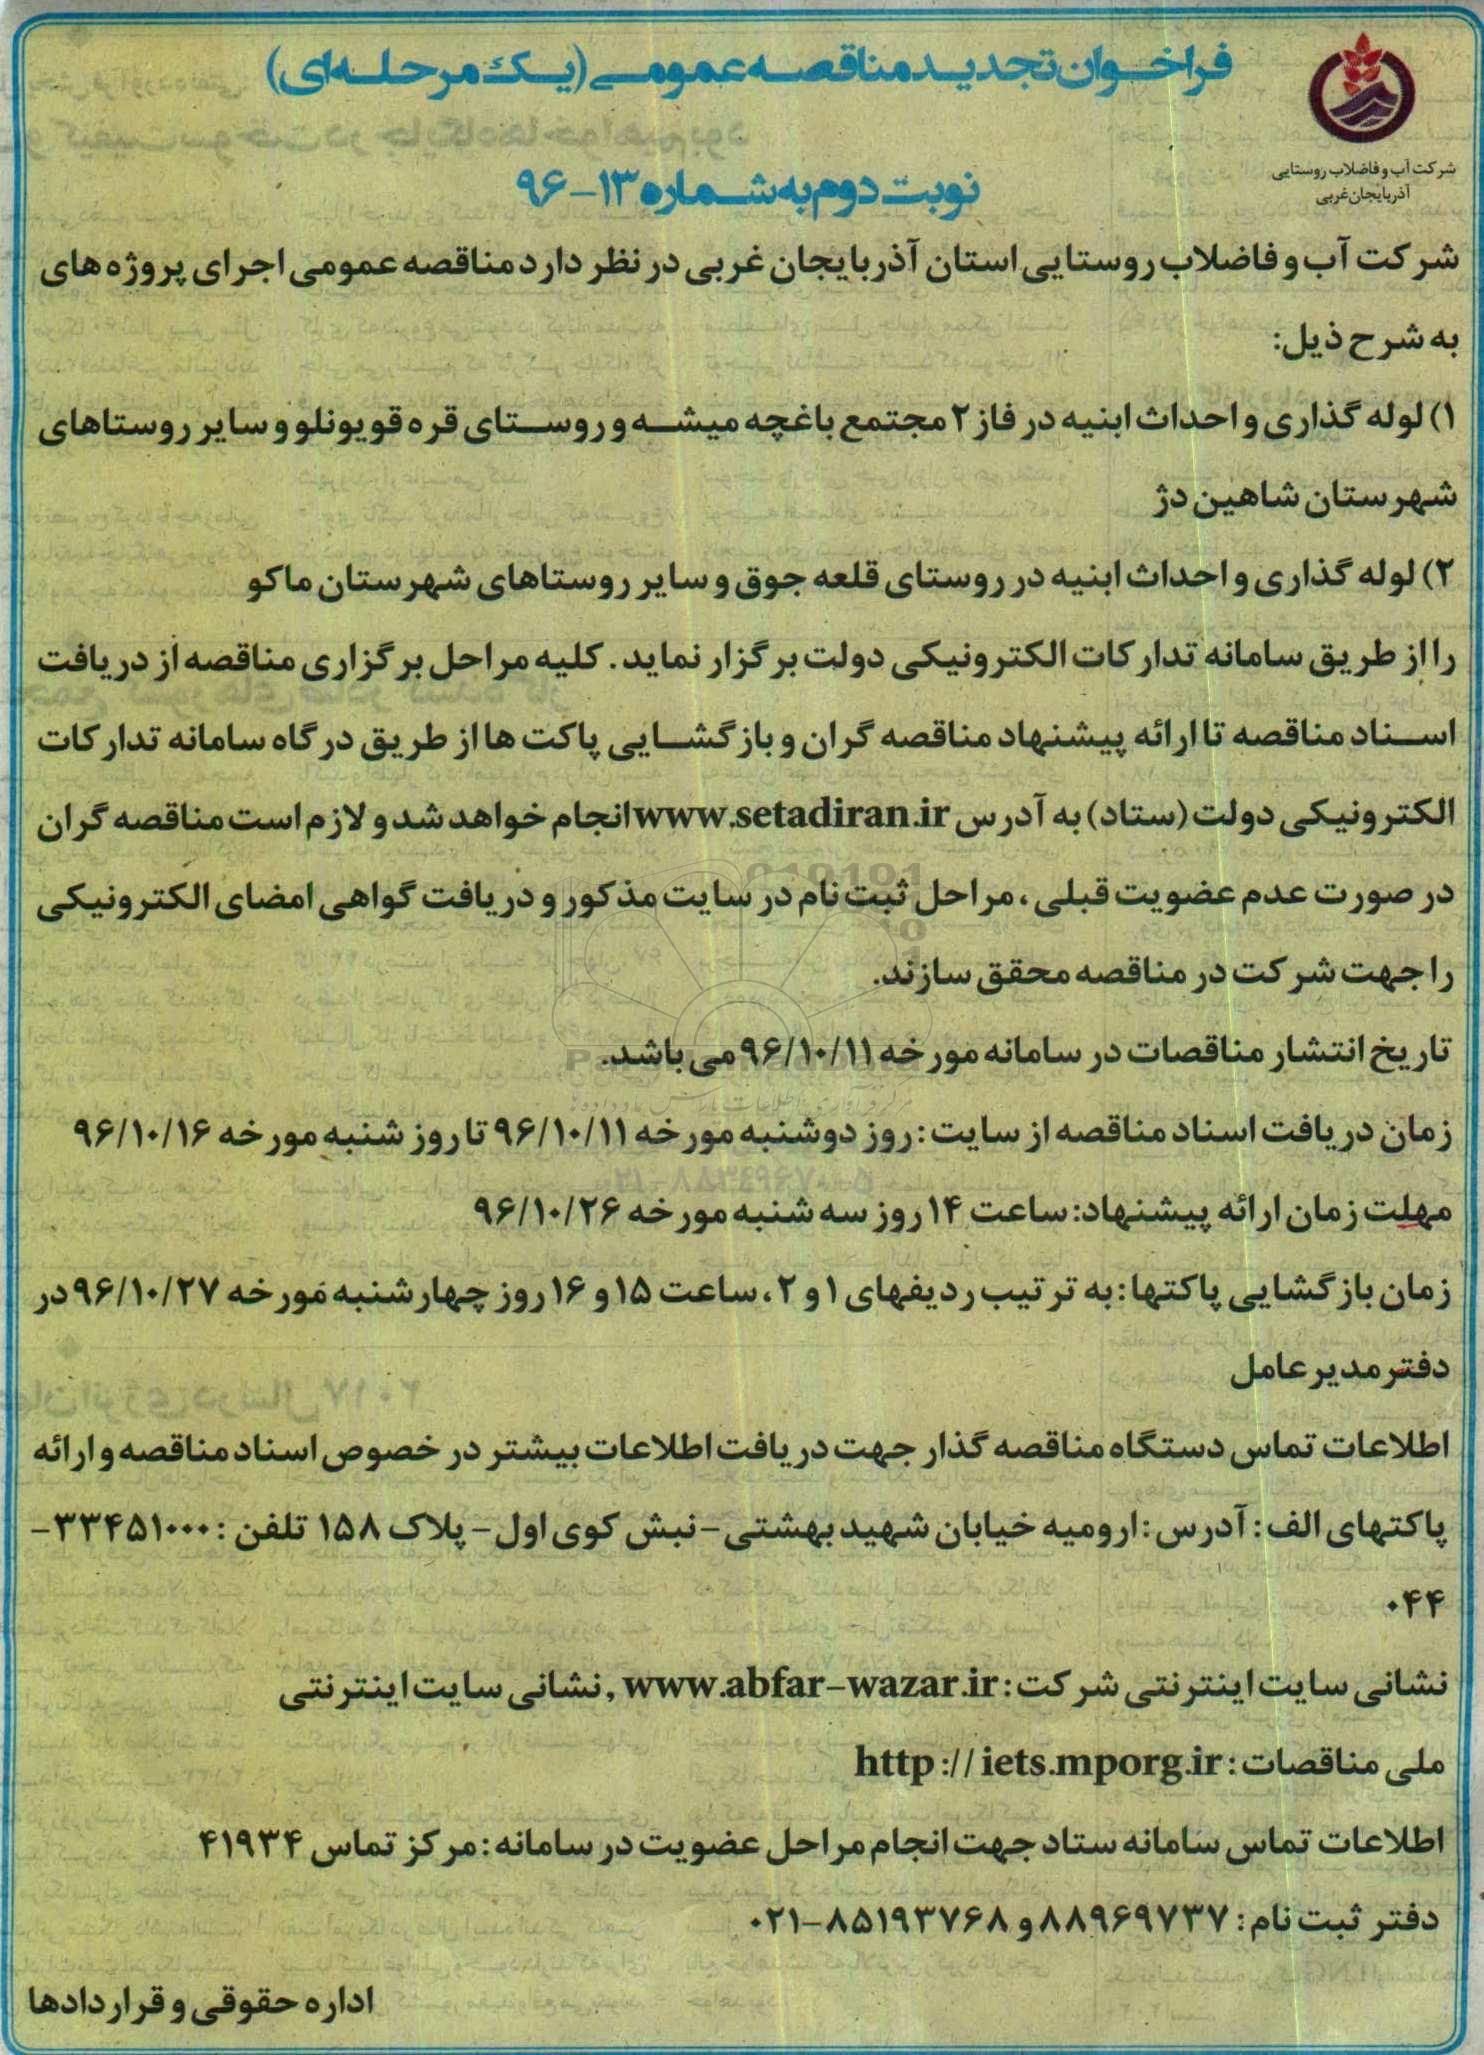 فراخوان تجدید مناقصه عمومی (یک مرحله‌ای)
شرکت آب و فاضلاب روستایی
آذربایجان غربی
نوبت دوم به شماره ۱۳-۹۶
شرکت آب و فاضلاب روستایی استان آذربایجان غربی در نظر دارد مناقصه عمومی اجرای پروژه های
به شرح ذیل:
۱) لوله گذاری و احداث ابنیه در فاز ۲ مجتمع باغچه میشه و روستای قره قویونلو و سایر روستاهای
شهرستان شاهین دژ
۲) لوله گذاری و احداث ابنیه در روستای قلعه جوق و سایر روستاهای شهرستان ماکو
را از طریق سامانه تدارکات الکترونیکی دولت برگزار نماید. کلیه مراحل برگزاری مناقصه از دریافت
اسناد مناقصه تا ارائه پیشنهاد مناقصه گران و بازگشایی پاکت ها از طریق درگاه سامانه تدارکات
الکترونیکی دولت (ستاد) به آدرس www.setadiran.ir انجام خواهد شد و لازم است مناقصه گران
در صورت عدم عضویت قبلی، مراحل ثبت نام در سایت مذکور و دریافت گواهی امضای الکترونیکی
را جهت شرکت در مناقصه محقق سازند.
تاریخ انتشار مناقصات در سامانه مورخه ۹۶/۱۰/۱۱ می باشد.
زمان دریافت اسناد مناقصه از سایت: روز دوشنبه مورخه ۹۶/۱۰/۱۱ تا روز شنبه مورخه ۹۶/۱۰/۱۶
مهلت زمان ارائه پیشنهاد: ساعت ۱۴ روز سه شنبه مورخه ۹۶/۱۰/۲۶
زمان بازگشایی پاکتها: به ترتیب ردیفهای ۱ و ۲، ساعت ۱۵ و ۱۶ روز چهارشنبه مورخه ۹۶/۱۰/۲۷ در
دفتر مدیرعامل
اطلاعات تماس دستگاه مناقصه گذار جهت دریافت اطلاعات بیشتر در خصوص اسناد مناقصه و ارائه
پاکتهای الف: آدرس: ارومیه خیابان شهید بهشتی - نبش کوی اول - پلاک ۱۵۸ تلفن: ۳۳۴۵۱۰۰۰-
۰۴۴
نشانی سایت اینترنتی شرکت: www.abfar-wazar.ir , نشانی سایت اینترنتی
ملی مناقصات: http://iets.mporg.ir
اطلاعات تماس سامانه ستاد جهت انجام مراحل عضویت در سامانه: مرکز تماس ۴۱۹۳۴
دفتر ثبت نام: ۸۸۹۶۹۷۳۷ و ۸۵۱۹۳۷۶۸-۰۲۱
اداره حقوقی و قراردادها